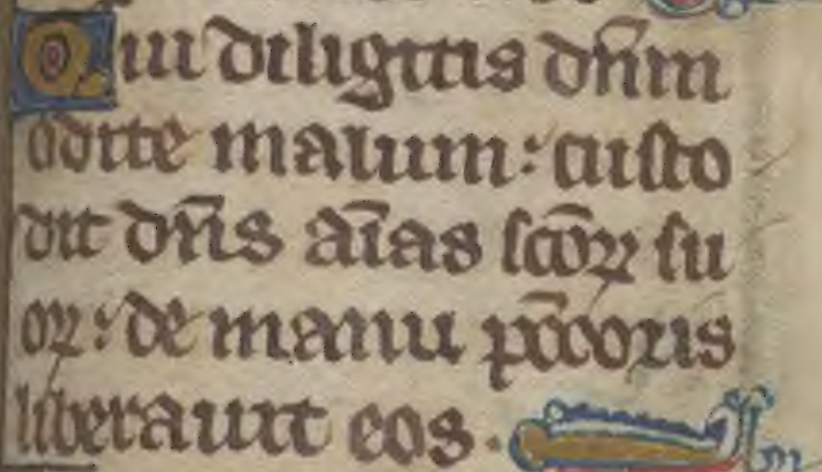 Qui diligitis dn̄m
odite malum : custo
dit dn̄s aīas scōꝝ su
oꝝ : de manu pc̄coris
liberauit eos .